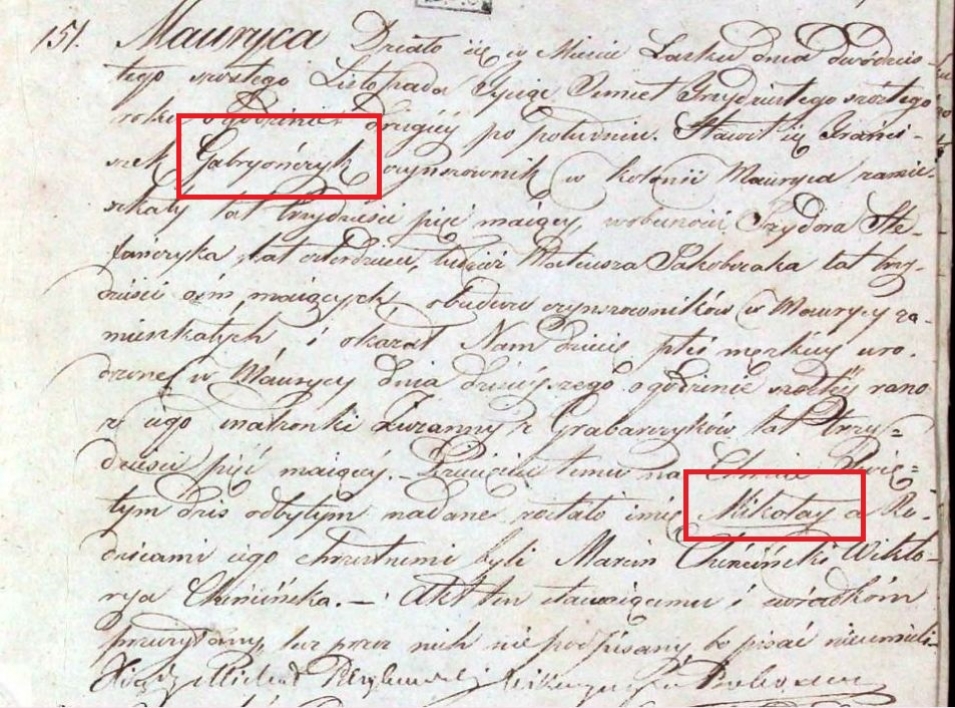 151. Mauryca Działo się w Mieście Łasku dnia dwódzie-
tego szóstego Listopada Tysiąc Osmset Trzydziestego szóstego
roku o godzinie drugiéy po południu. Stawił się Franci-
szek Gabryończyk czynszownik w kolonii Mauryca zamie-
szkały lat trzydzieści pięć maiący, w obecności Izydora Ste-
fańczyka lat czterdzieści, tudzież Mateusza Jakobczaka lat trzy-
dzieści ośm maiących obudwu czynszowników w Maurycy za-
mieszkałych i okazał Nam dziecię płci męzkiey uro-
dzone w Maurycy dnia dzisieyszego o godzinie szóstéy rano
z iego małżonki Zuzanny z Grabarczyków lat trzy-
dzieści pięć maiącey. – Dziecięciu temu na Chrzcie Swię-
tym dziś odbytym nadane zostało imie Mikołay a Ro-
dzicami iego chrzestnemi byli Marcin Chéciński Wikto-
rya Chécińska. – Akt ten stawaiącemu i świadkóm
przeczytany, lecz przez nich nie podpisany bo pisać nieumieli.
Xiądz